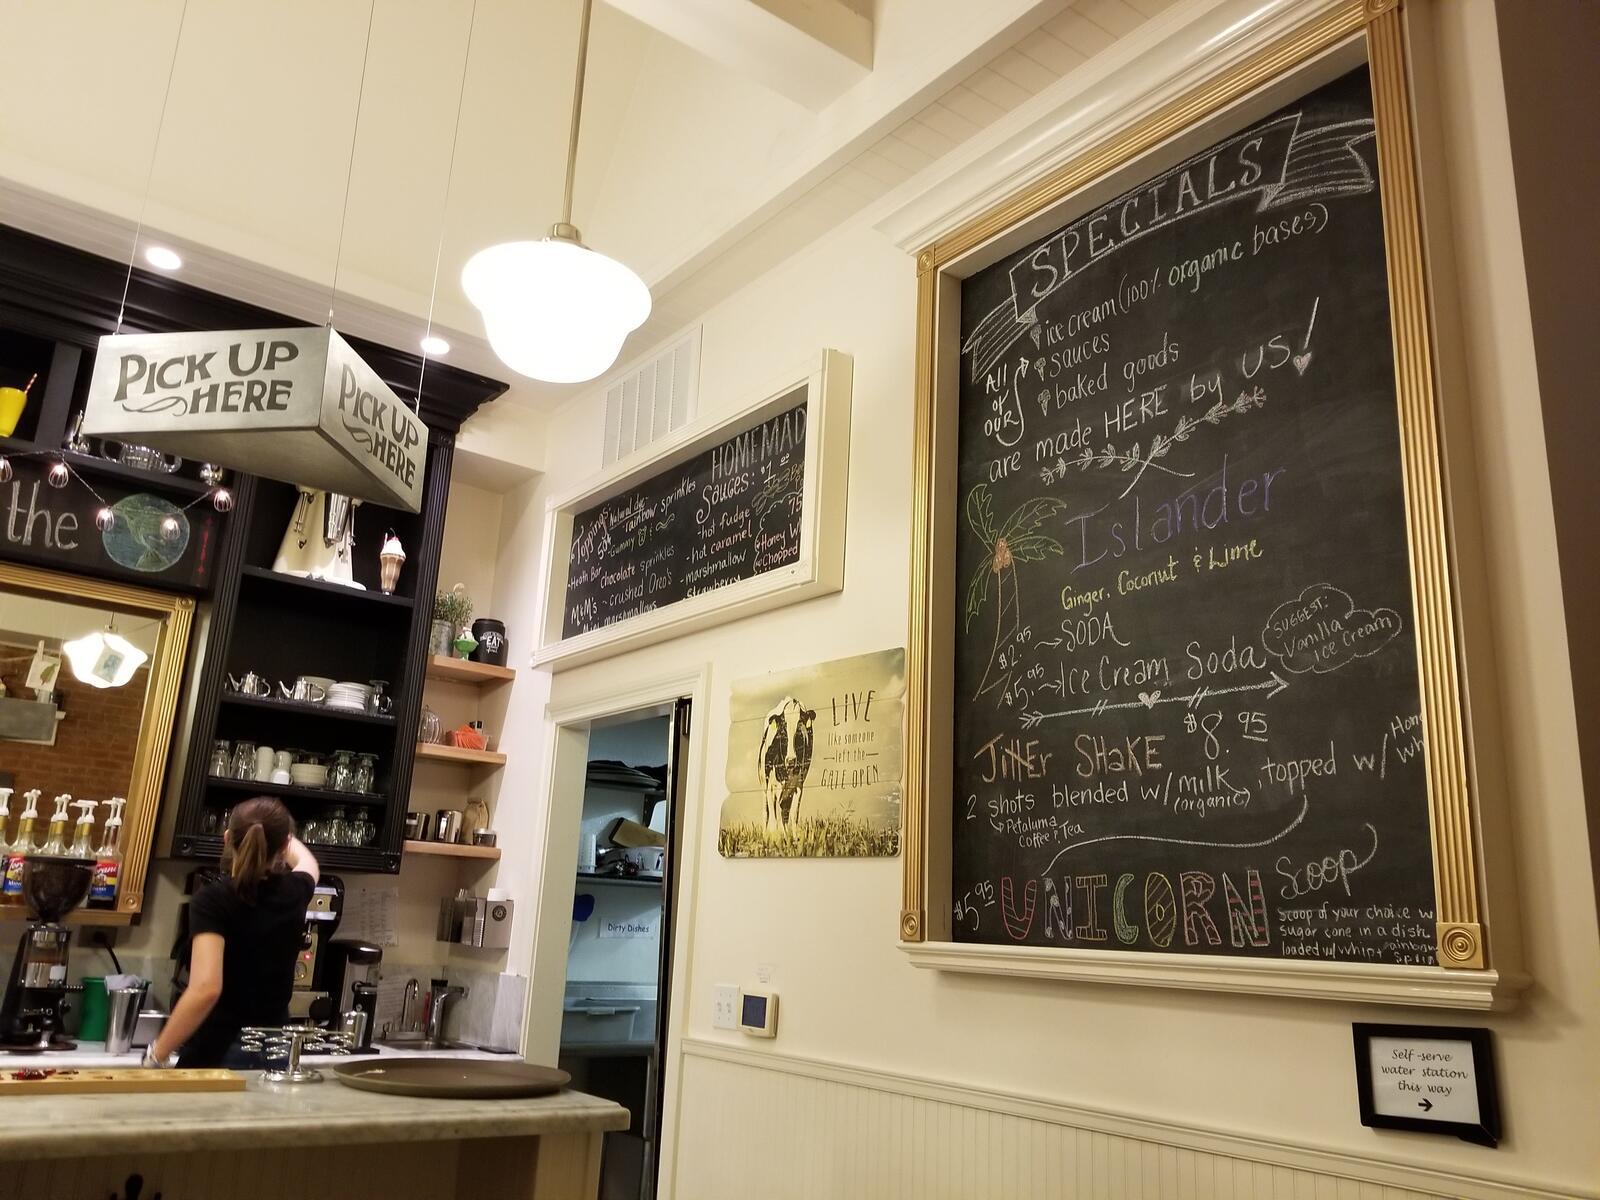 PICK UP
HERE
PICK UP
HERE
the
HOMEMAD
Toppings:
50¢
Natural dye
-rainbow sprinkles
-Gummy
-Heath Bar
chocolate sprinkles
M&M's
-crushed Oreo's
Mini marshmallows
Sauces: $1.00
-hot fudge
-hot caramel
-marshmallow
Strawberry
75
Honey W
Chopped
EAT
LIVE
like someone
left the
GATE OPEN
Dirty Dishes
SPECIALS
All
of
our
ice cream (100% organic bases)
sauces
baked goods
are made HERE by US!
Islander
Ginger, Coconut & Lime
$2.95 → SODA
$5.95 → Ice Cream Soda
SUGGEST:
Vanilla
ice cream
JittEr SHaKE $8.95
2 shots blended w/ milk, topped w/ Hon
Wh
(organic)
Petaluma
Coffee & Tea
$5.95 UNICORN Scoop
Scoop of your choice w
sugar cone in a dish
loaded w/ whip + rainbow
Sprin
Self-serve
water station
this way
→